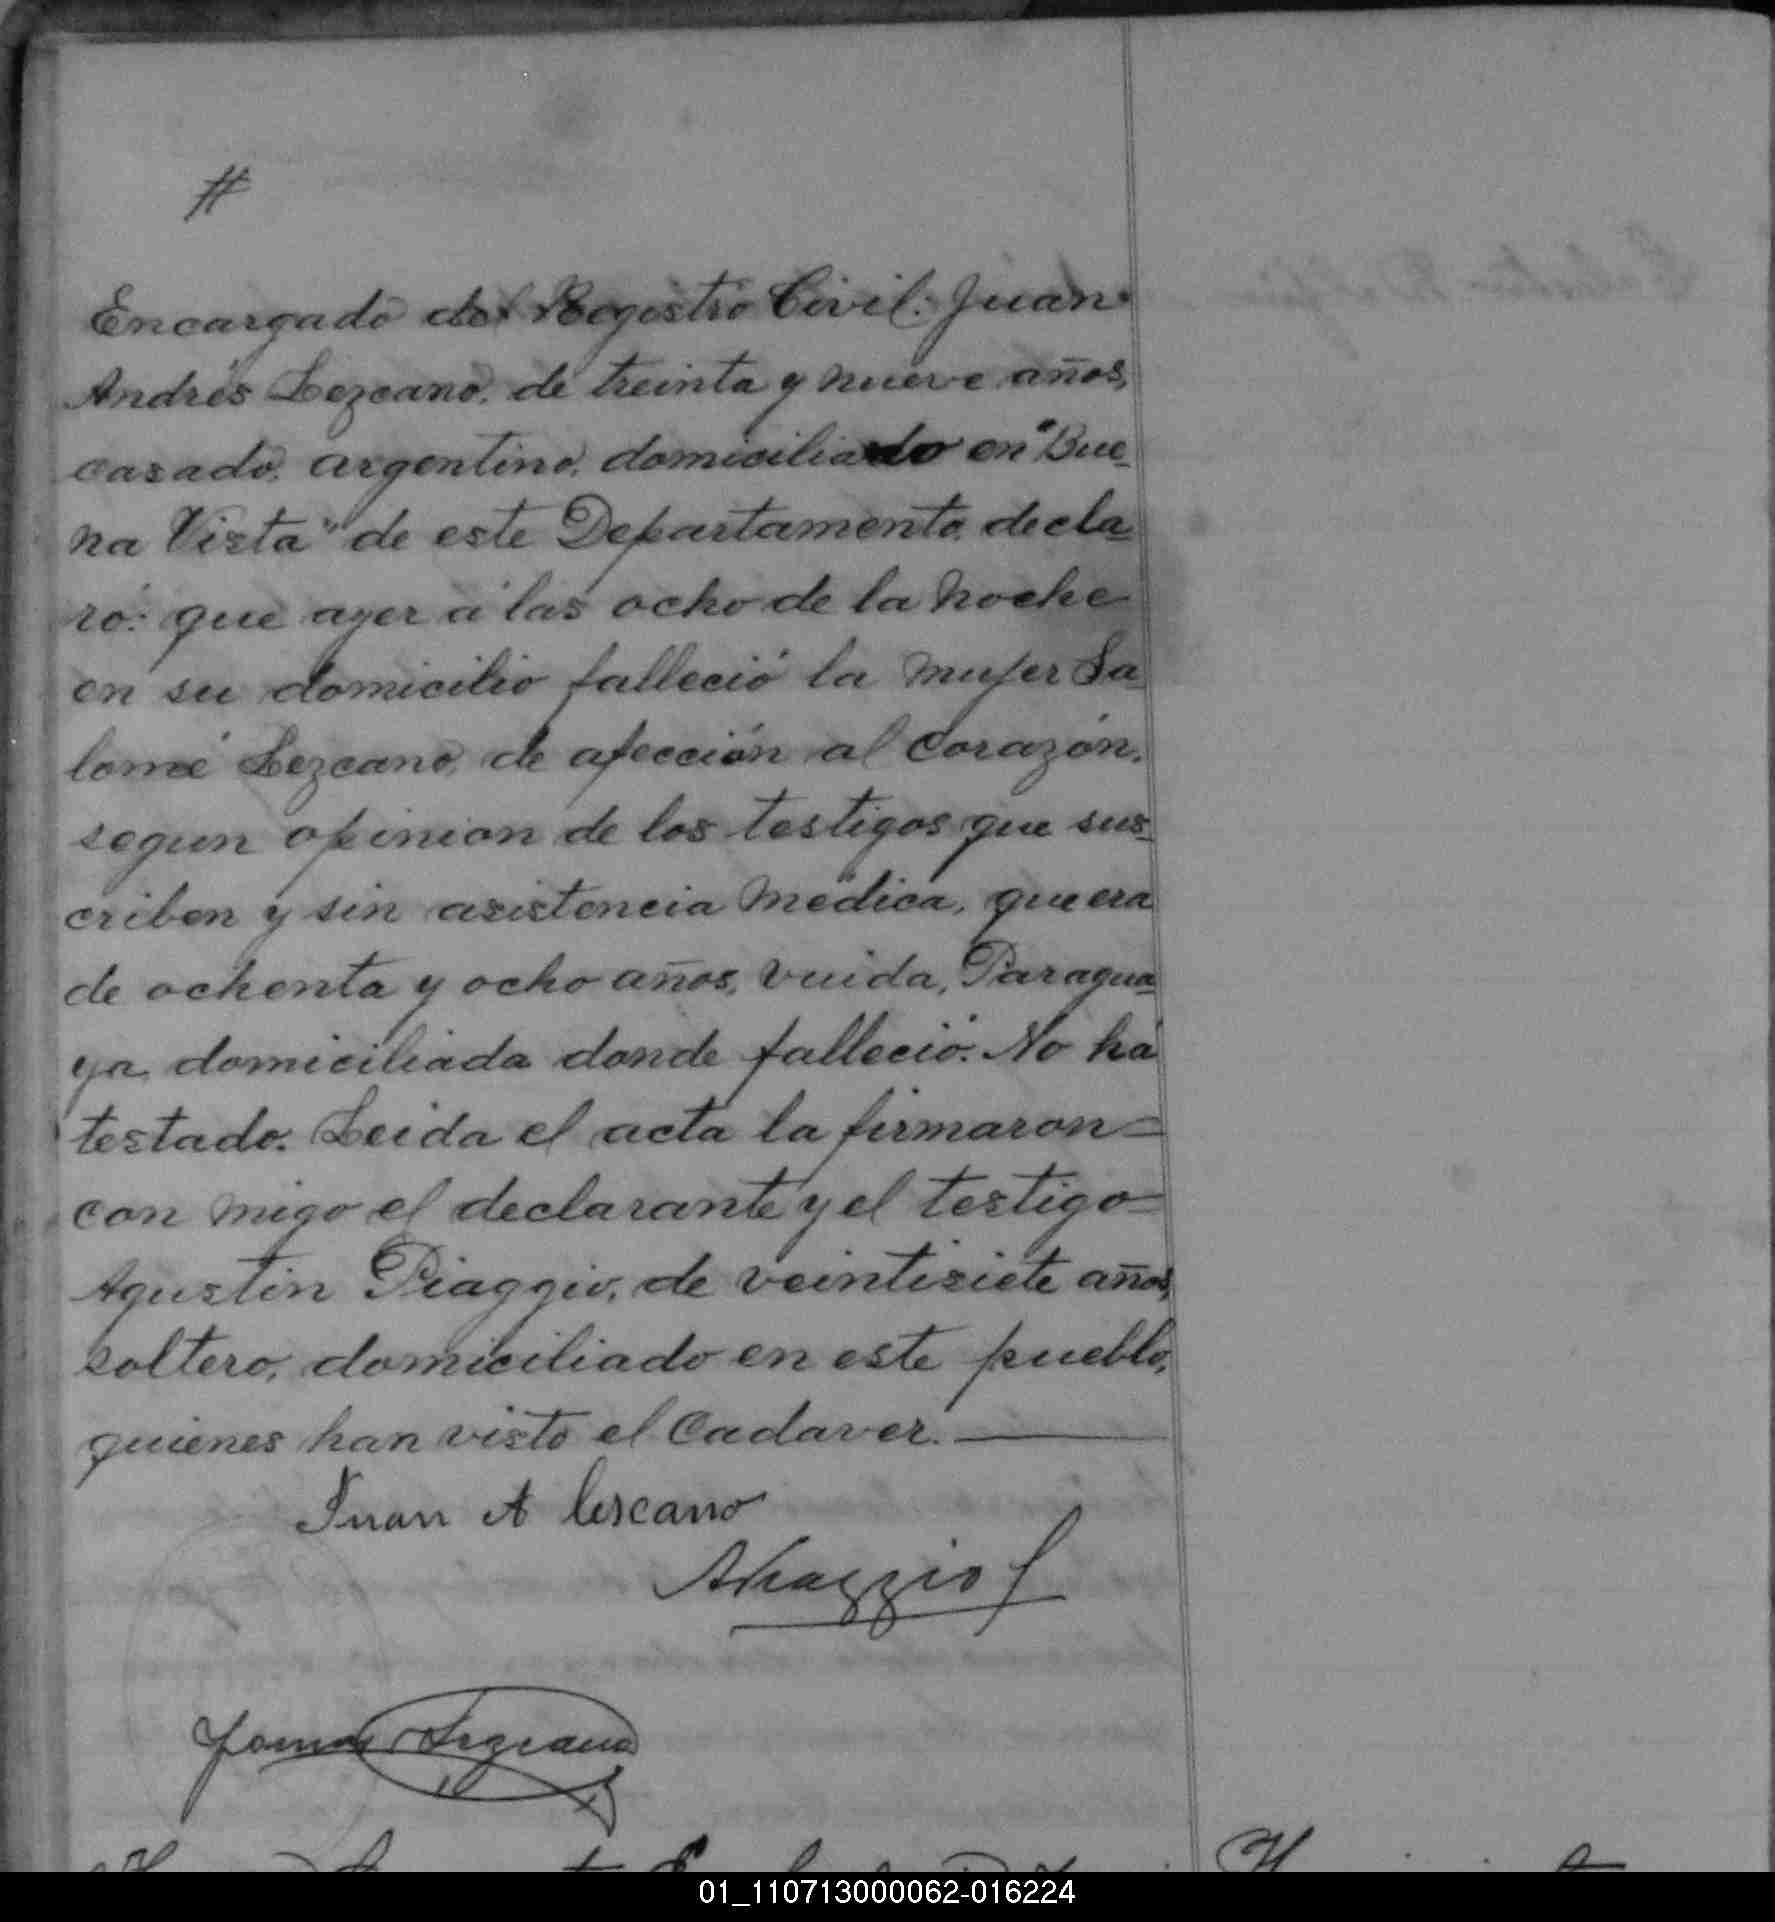 #
Encargado del Registro Civil: Juan
Andrés Lezcano, de treinta y nueve años,
casado, argentino, domiciliado en "Bue-
na Vista" de este Departamento, decla-
ró: que ayer á las ocho de la noche
en su domicilio falleció la mujer Sa-
lomé Lezcano, de afección al corazón,
segun opinion de los testigos que sus-
criben y sin asistencia médica, que era
de ochenta y ocho años, vuida, Paragua-
ya domiciliada donde falleció. No há
testado. Leida el acta la firmaron=
con migo el declarante y el testigo=
Agustin Piaggio, de veintisiete años,
soltero, domiciliado en este pueblo,
quienes han visto el Cadaver.
Juan A Lescano
APiaggio
01_110713000062-016224